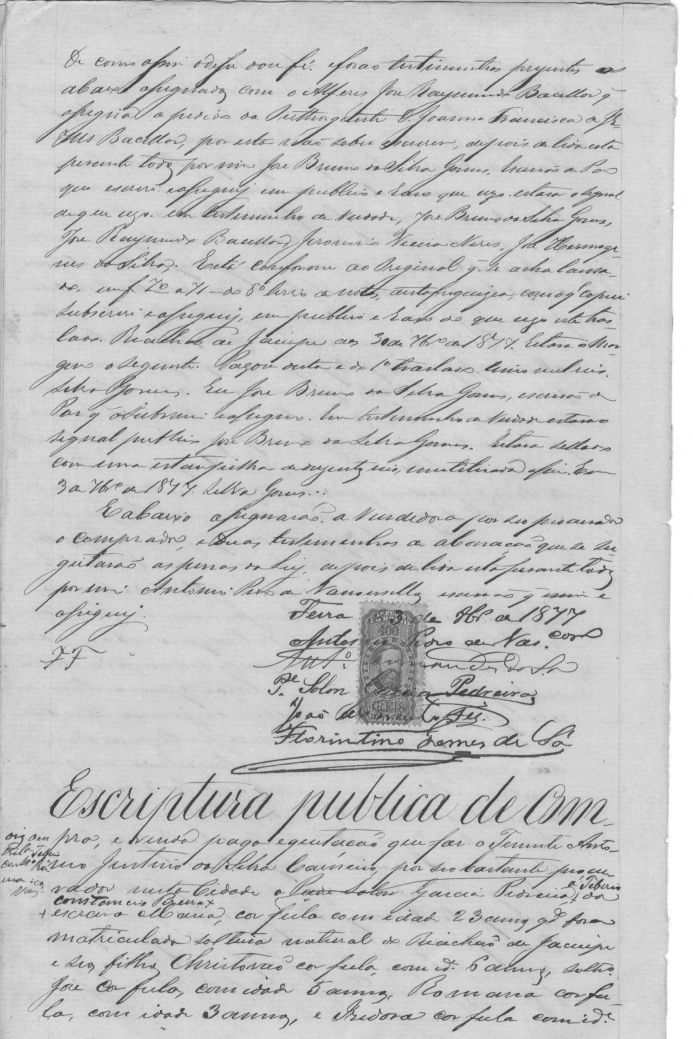 De como assim o disse dou fé. e forão testimunhas presentes os
abaixo assignados, com o Alferes José Raymundo Bacellar q̃
assignou a pedido da outhorgante D. Joanna Francisca de Je-
sus Bacellar, por esta não saber escrever, depois de lida esta
perante todos, por mim José Bruno da Silva Gomes, Escrivão de Paz
que escrevi e assignei em publico e razo que uzo. estava o signal
de que uzo. em testemunho de verdade, José Bruno da Silva Gomes,
José Raymundo Bacellar, Jeronimo Vieira Neves, José Hermoge-
nes da Silva. Está conforme ao Original q̃ se acha lança-
do em f 70 a 71 do 8º livro de notas,
subscrevi e assignei, em publico e razo de que uzo este tras-
lado. Riachão de Jacuipe aos 30 de 7bro de 1877. Estava a Mar-
gem o seguinte. Pagou desta e do 1º traslado
Silva Gomes. Eu José Bruno da Silva Gomes, escrivão de
Paz q̃ o subscrevi e assigno. Em testemunho de verdade estava o
signal publico José Bruno da Silva Gomes. Estava sellado
com uma estampilha de duzentos reis, inutilisada assim.
3 de 7bro de 1877. Silva Gomes..
E abaixo assignarão, a vendedora por seo procurador
o comprador, e duas testemunhas de abonação que se su-
geitarão as penas da Lei, depois de lida esta perante todos
por mim Antonio Pedro de Vasconcellos escrivão q̃ escrevi e
assignei.
Feira 3 de 9bro de 1877
Antonio Pedro de Vas.cos
400
FF Antº Fernandes de Sá
Pe Solon Garcia Pedreira
REIS
João
Florintino Gomes de Sá
Escriptura publica de Com-
pra, e venda paga e quitação que faz o Tenente Anto-
nio Justino da Silva Carneiro, por seo bastante procu-
rador nesta Cidade o Padre Solon Garcia Pedreira, da
a Tiberio
Constancio Pereira
+ escrava Maria, cor fula com idade 23 annos q̃ fora
matriculada solteira natural do Riachão de Jacuipe
e seos filhos, Christovão cor fula com id. 6 annos, soltº.
José cor fula, com idade 5 annos, Romana cor fu-
la, com idade 3 annos, e Izidora cor fula com id.e